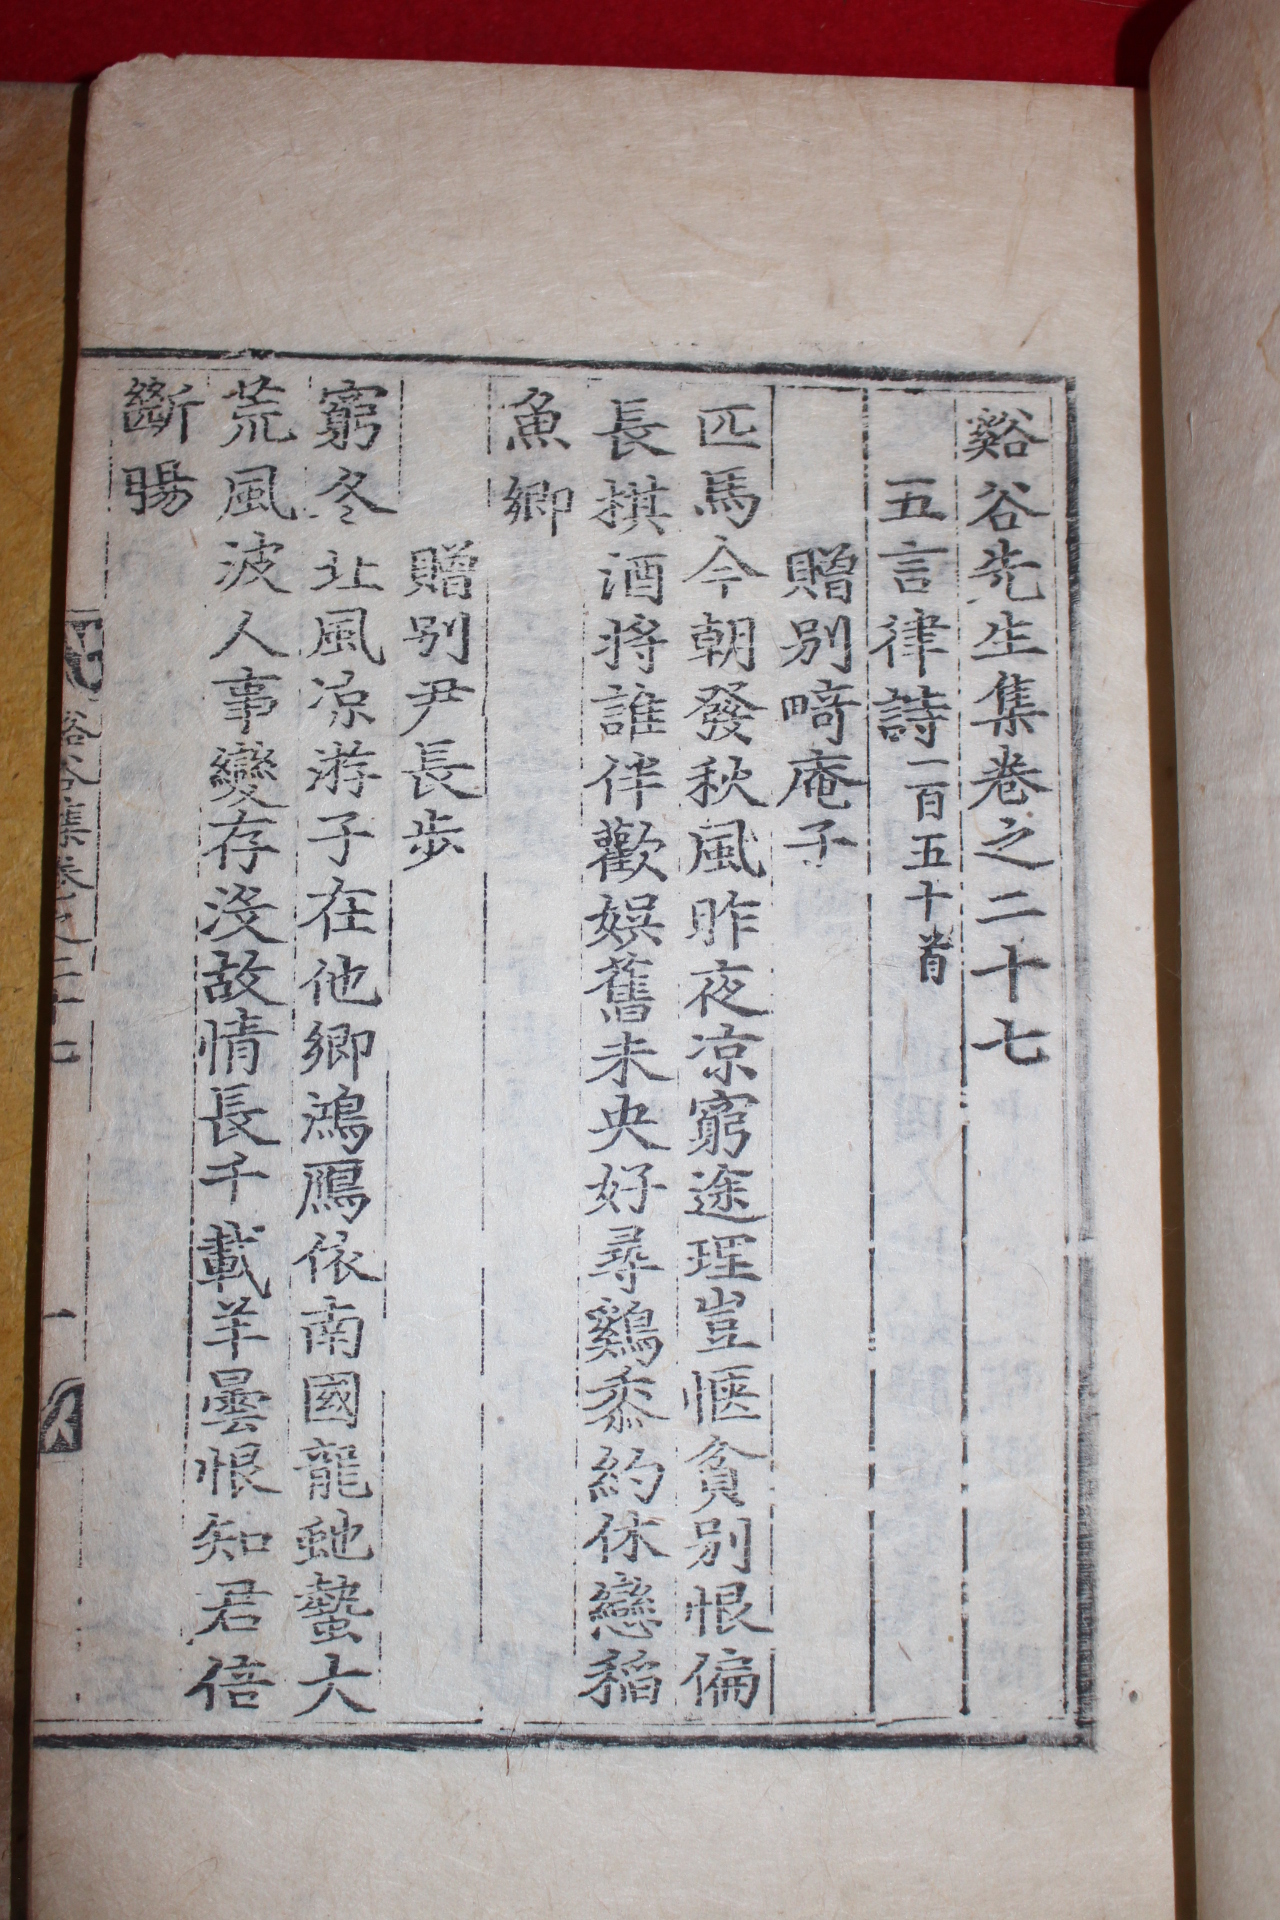 谿谷先生集卷之二十七
五言律詩一百五十首
贈別畸庵子
匹馬今朝發秋風昨夜凉窮途理豈愜貧別恨偏
長拱酒將誰伴歡娛舊未央好尋鷄黍約休戀稻
魚鄉
贈別尹長步
窮冬北風凉游子在他鄉鴻鴈依南國龍虵蟄大
荒風波人事變存沒故情長千載羊曇恨知君倍
斷腸
谿谷集卷之二十七 一